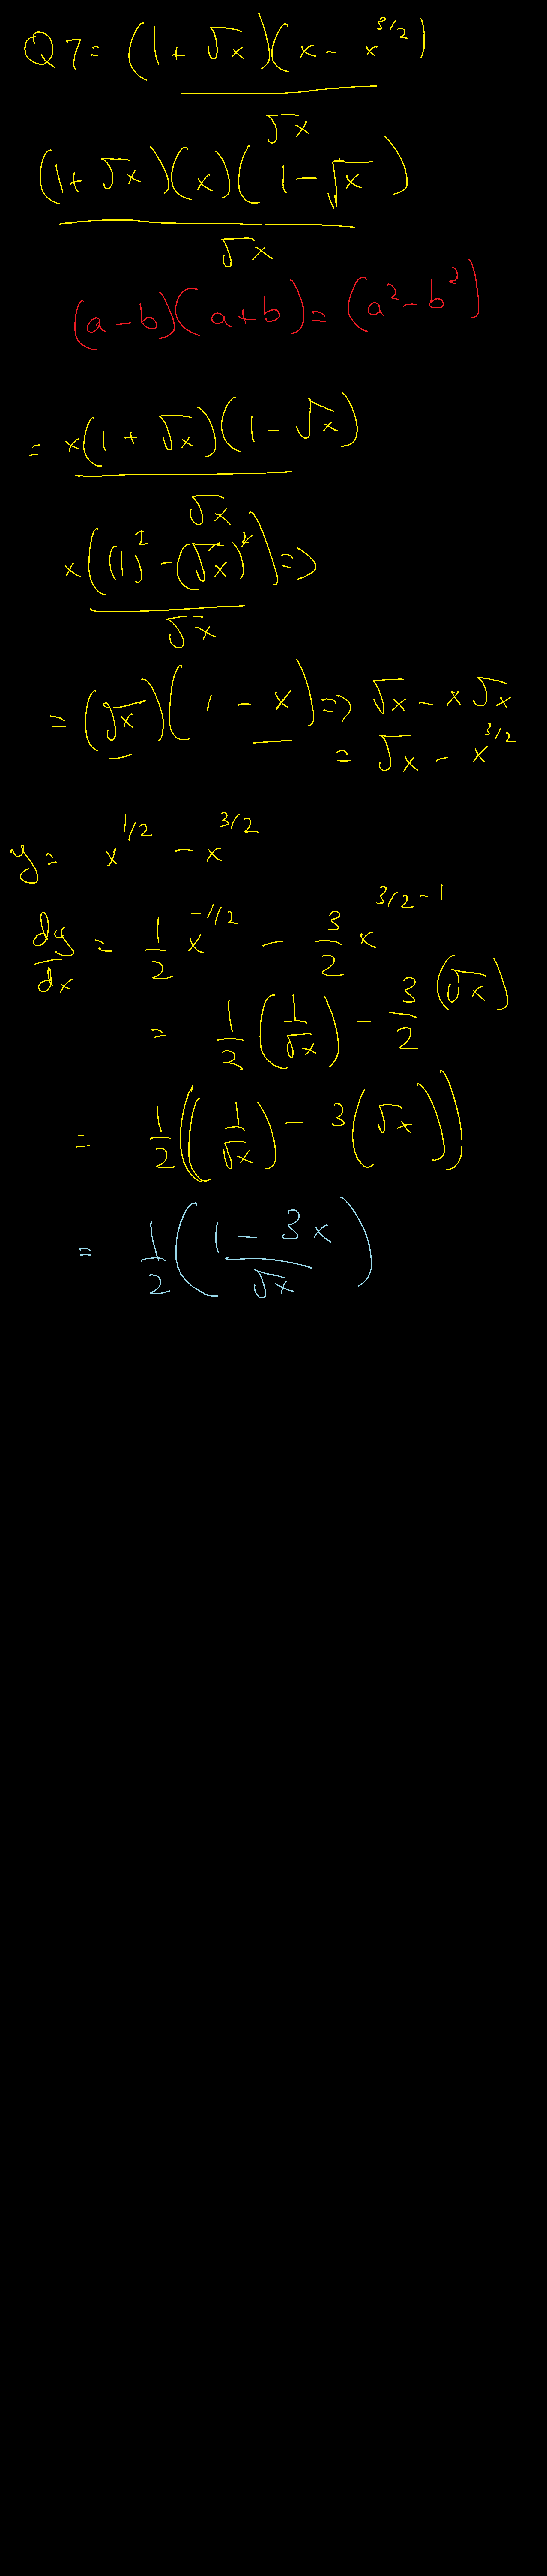 Q7= (1+√x)(x-x^3/2)
√x
(1+√x)(x)(1-√x)
√x
(a-b)(a+b)=(a²-b²)
= x(1+√x)(1-√x)
√x
x((1)²-(√x)²) =>
√x
= (√x)(1-x) => √x-x√x
= √x-x^3/2
y= x^1/2-x^3/2
dy/dx = 1/2 x^-1/2 - 3/2 x^3/2-1
= 1/2 (1/√x) - 3/2 (√x)
= 1/2((1/√x)-3(√x))
= 1/2(1-3x/√x)